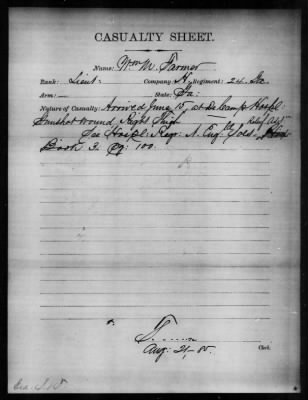 CASUALTY SHEET.
Name: Wm M. Farmer
Rank: Lieut: Company: H, Regiment: 24 Ga.
Arm: State: Ga:
Nature of Casualty: Arrived June 15, at DeCamp Hospl:
Gunshot wound, Right Thigh
See Hospl. Regr. N. Eng. Sols Relief Ass
Book 3. Pg: 100.
Aug: 21-85. Clerk.